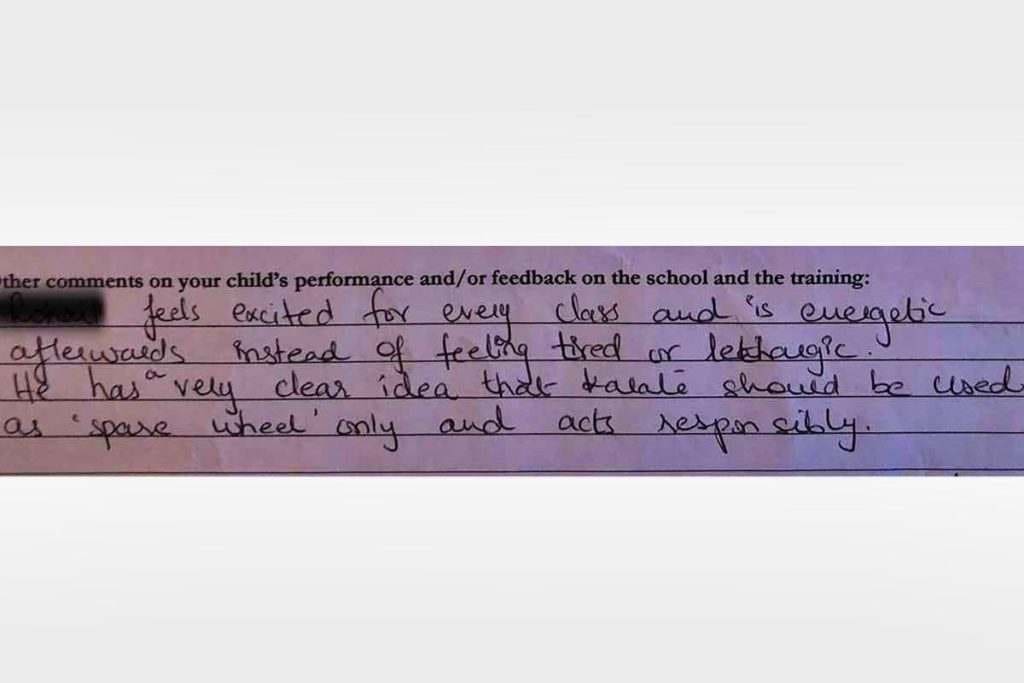 ther comments on your child's performance and/or feedback on the school and the training:
feels excited for every class and is energetic
afterwards instead of feeling tired or lethargic.
He has a very clear idea that karate should be used
as 'spare wheel' only and acts responsibly.